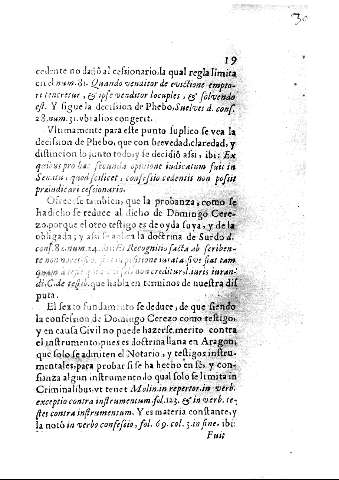 19
cedente no dañò al cessionario, la qual regla limita
en el num. 81. Quando venditor de evictione empto-
ri teneretur, & ipse venditor locuples, & solvendo
est. Y sigue la decision de Phebo, Suelves d. cons.
28. num. 31. vbi alios congerit.
Vltimamente para este punto suplico se vea la
decision de Phebo, que con brevedad, claredad, y
distincion lo junto todo, y se decidiò assi, ibi: Ex
quibus pro hac secunda opinione iudicatum fuit in
Senatu, quod scilicet, confessio cedentis non possit
præiudicare cessionario.
Ofrecese tambien, que la probança, como se
ha dicho se reduce al dicho de Domingo Cere-
zo, porque el otro testigo es de oyda suya, y de la
obligada; y assi se aplica la doctrina de Surdo d.
cons. 82. num. 24. Recognitio facta ab scriben-
te non iurata sive fiat tam
quam a non creditur, l. iuris iuran-
di, C. de testib. que habla en terminos de nuestra dis
puta.
El sexto fundamento se deduce, de que siendo
la confession de Domingo Cerezo como testigo,
y en causa Civil no puede hazerse merito contra
el instrumento, pues es doctrina llana en Aragon,
que solo se admiten el Notario, y testigos instru-
mentales, para probar si se ha hecho en fè, y con-
fiança algun instrumento do qual solo se limita in
Criminalibus, vt tenet Molin. in repertor. in verb.
exceptio contra instrumentum fol. 123. & in verb. te-
stes contra instrumentum. Y es materia constante, y
la notò in verbo confessio, fol. 69. col. 3. in fine, ibi:
Fuit